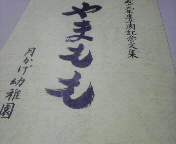 周年記念文集
やまもも
月かげ幼稚園